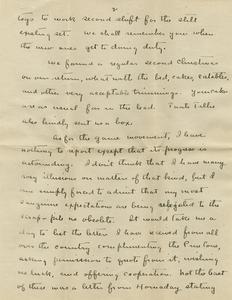 2
to go to work second shift for the still
We shall remember you when
the new ones get to doing duty.
We found a regular second Christmas
on our return, what with the box, cakes, eatables,
and other very acceptable trimmings. Your cake
are as usual far in the lead. Tante Tillie
also kindly sent us a box.
As for the game movement, I have
nothing to report except that its progress is
astounding. I don't think that I have many
very illusions on matters of that kind, but I
am simply forced to admit that my most
sanguine expectations are being relegated to the
scrap-pile as obsolete. It would take me a
day to list the letters I have received from all
over the country complimenting the Pine Cone,
asking permission to quote from it, wishing
us luck, and offering cooperation. Not the least
of these was a letter from Hornaday, stating